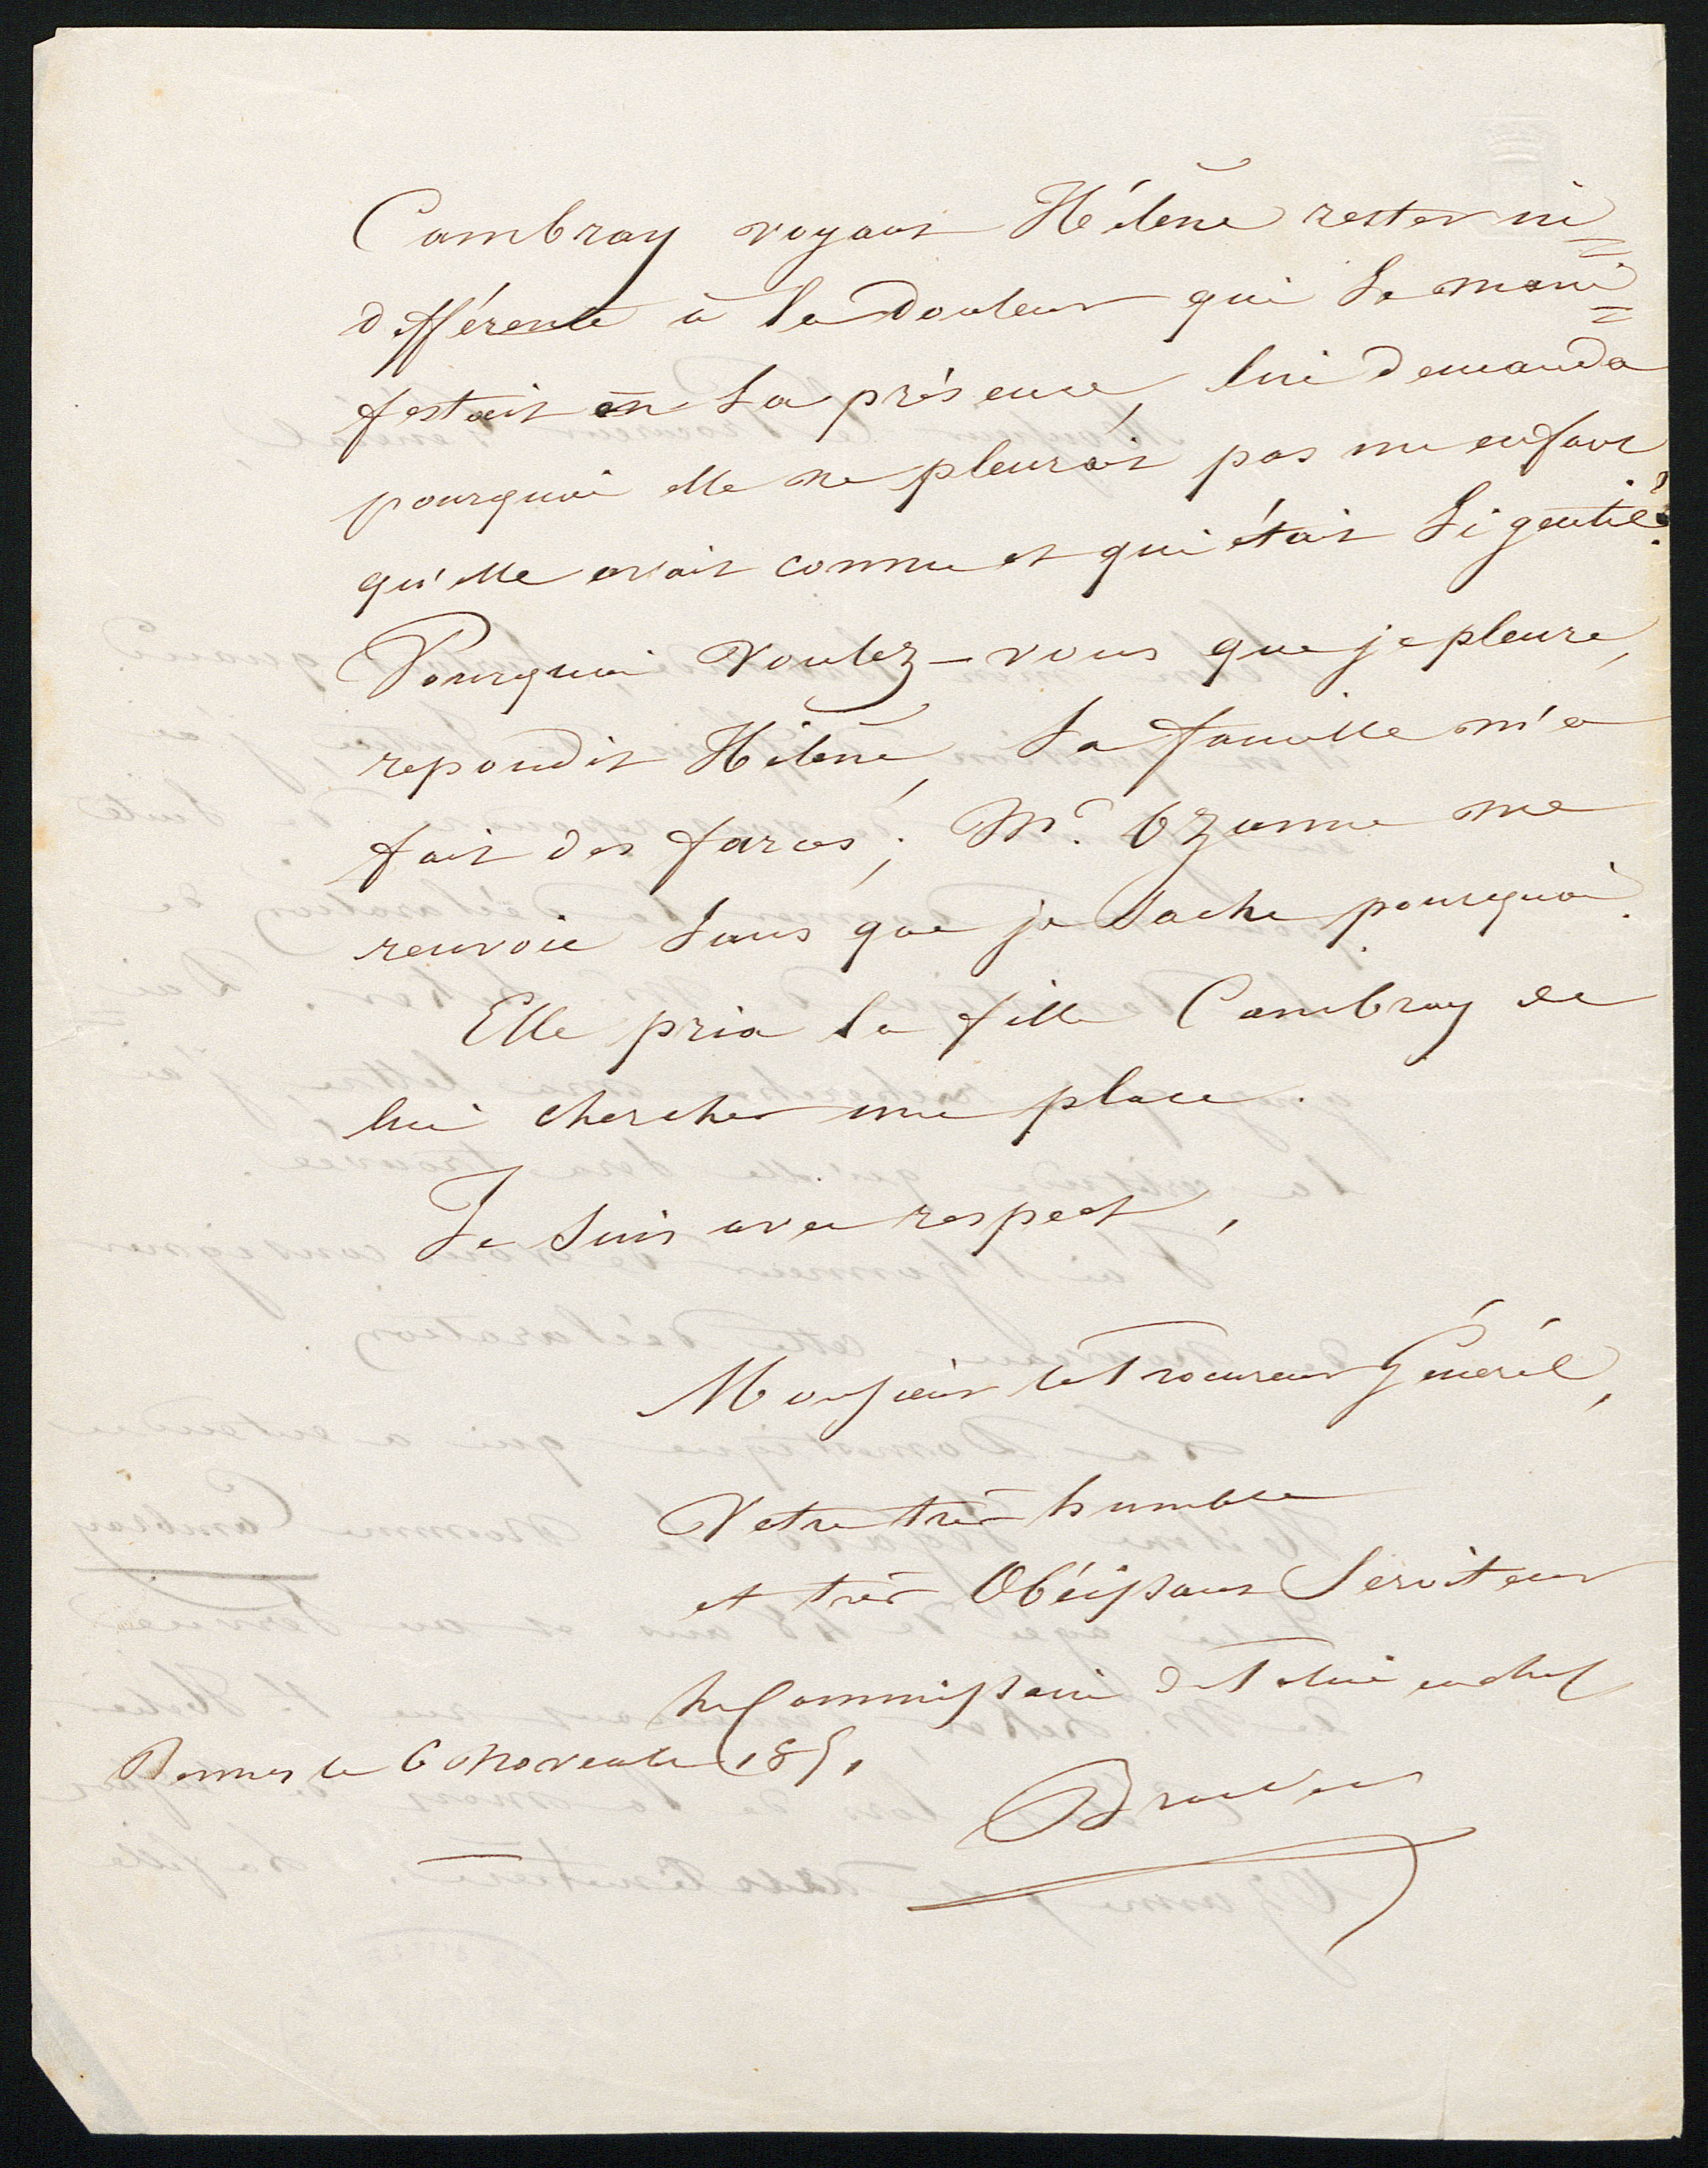 Cambray voyant Hélène rester in=
différente à la douleur qui se mani=
festait en sa présence, lui demanda
pourquoi elle ne pleurait pas un enfant
qu'elle avait connu et qui était si gentil?
Pourquoi voulez-vous que je pleure,
repondit Hélène, sa famille m'a
fait des farces; Mr. Ozanne me
renvoie sans que je sache pourquoi.
Elle pria la fille Cambray de
lui chercher une place.
Je suis avec respect,
Monsieur le Procureur Général,
Votre très humble
et très Obéissant Serviteur
Le Commissaire de Police en chef
Rennes le 6 Novembre 1851